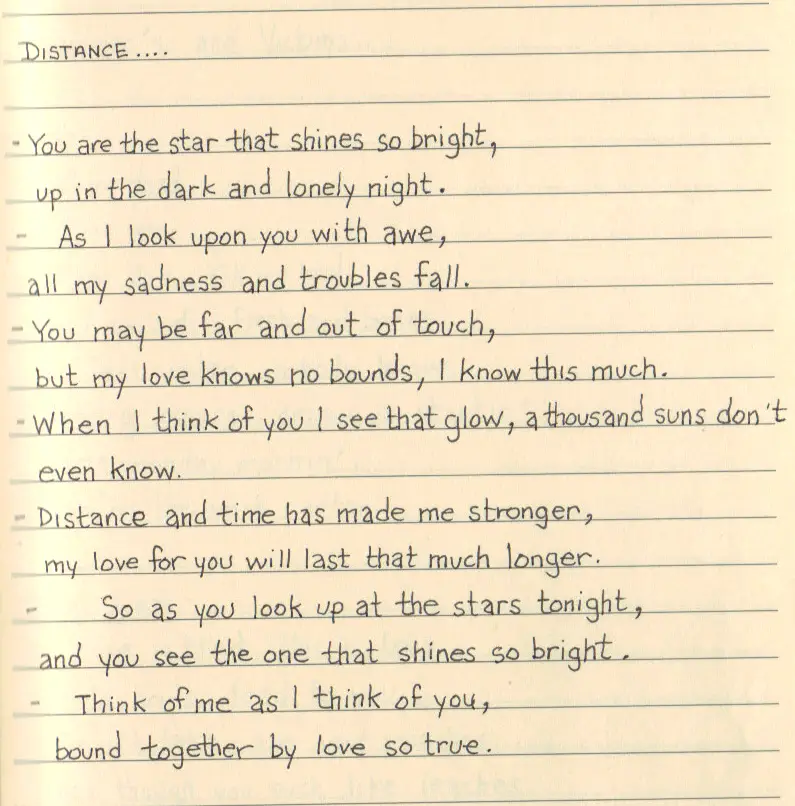 DISTANCE....
- You are the star that shines so bright,
up in the dark and lonely night.
- As I look upon you with awe,
all my sadness and troubles fall.
- You may be far and out of touch,
but my love knows no bounds, I know this much.
- When I think of you I see that glow, a thousand suns don't
even know.
- Distance and time has made me stronger,
my love for you will last that much longer.
- So as you look up at the stars tonight,
and you see the one that shines so bright.
- Think of me as I think of you,
bound together by love so true.